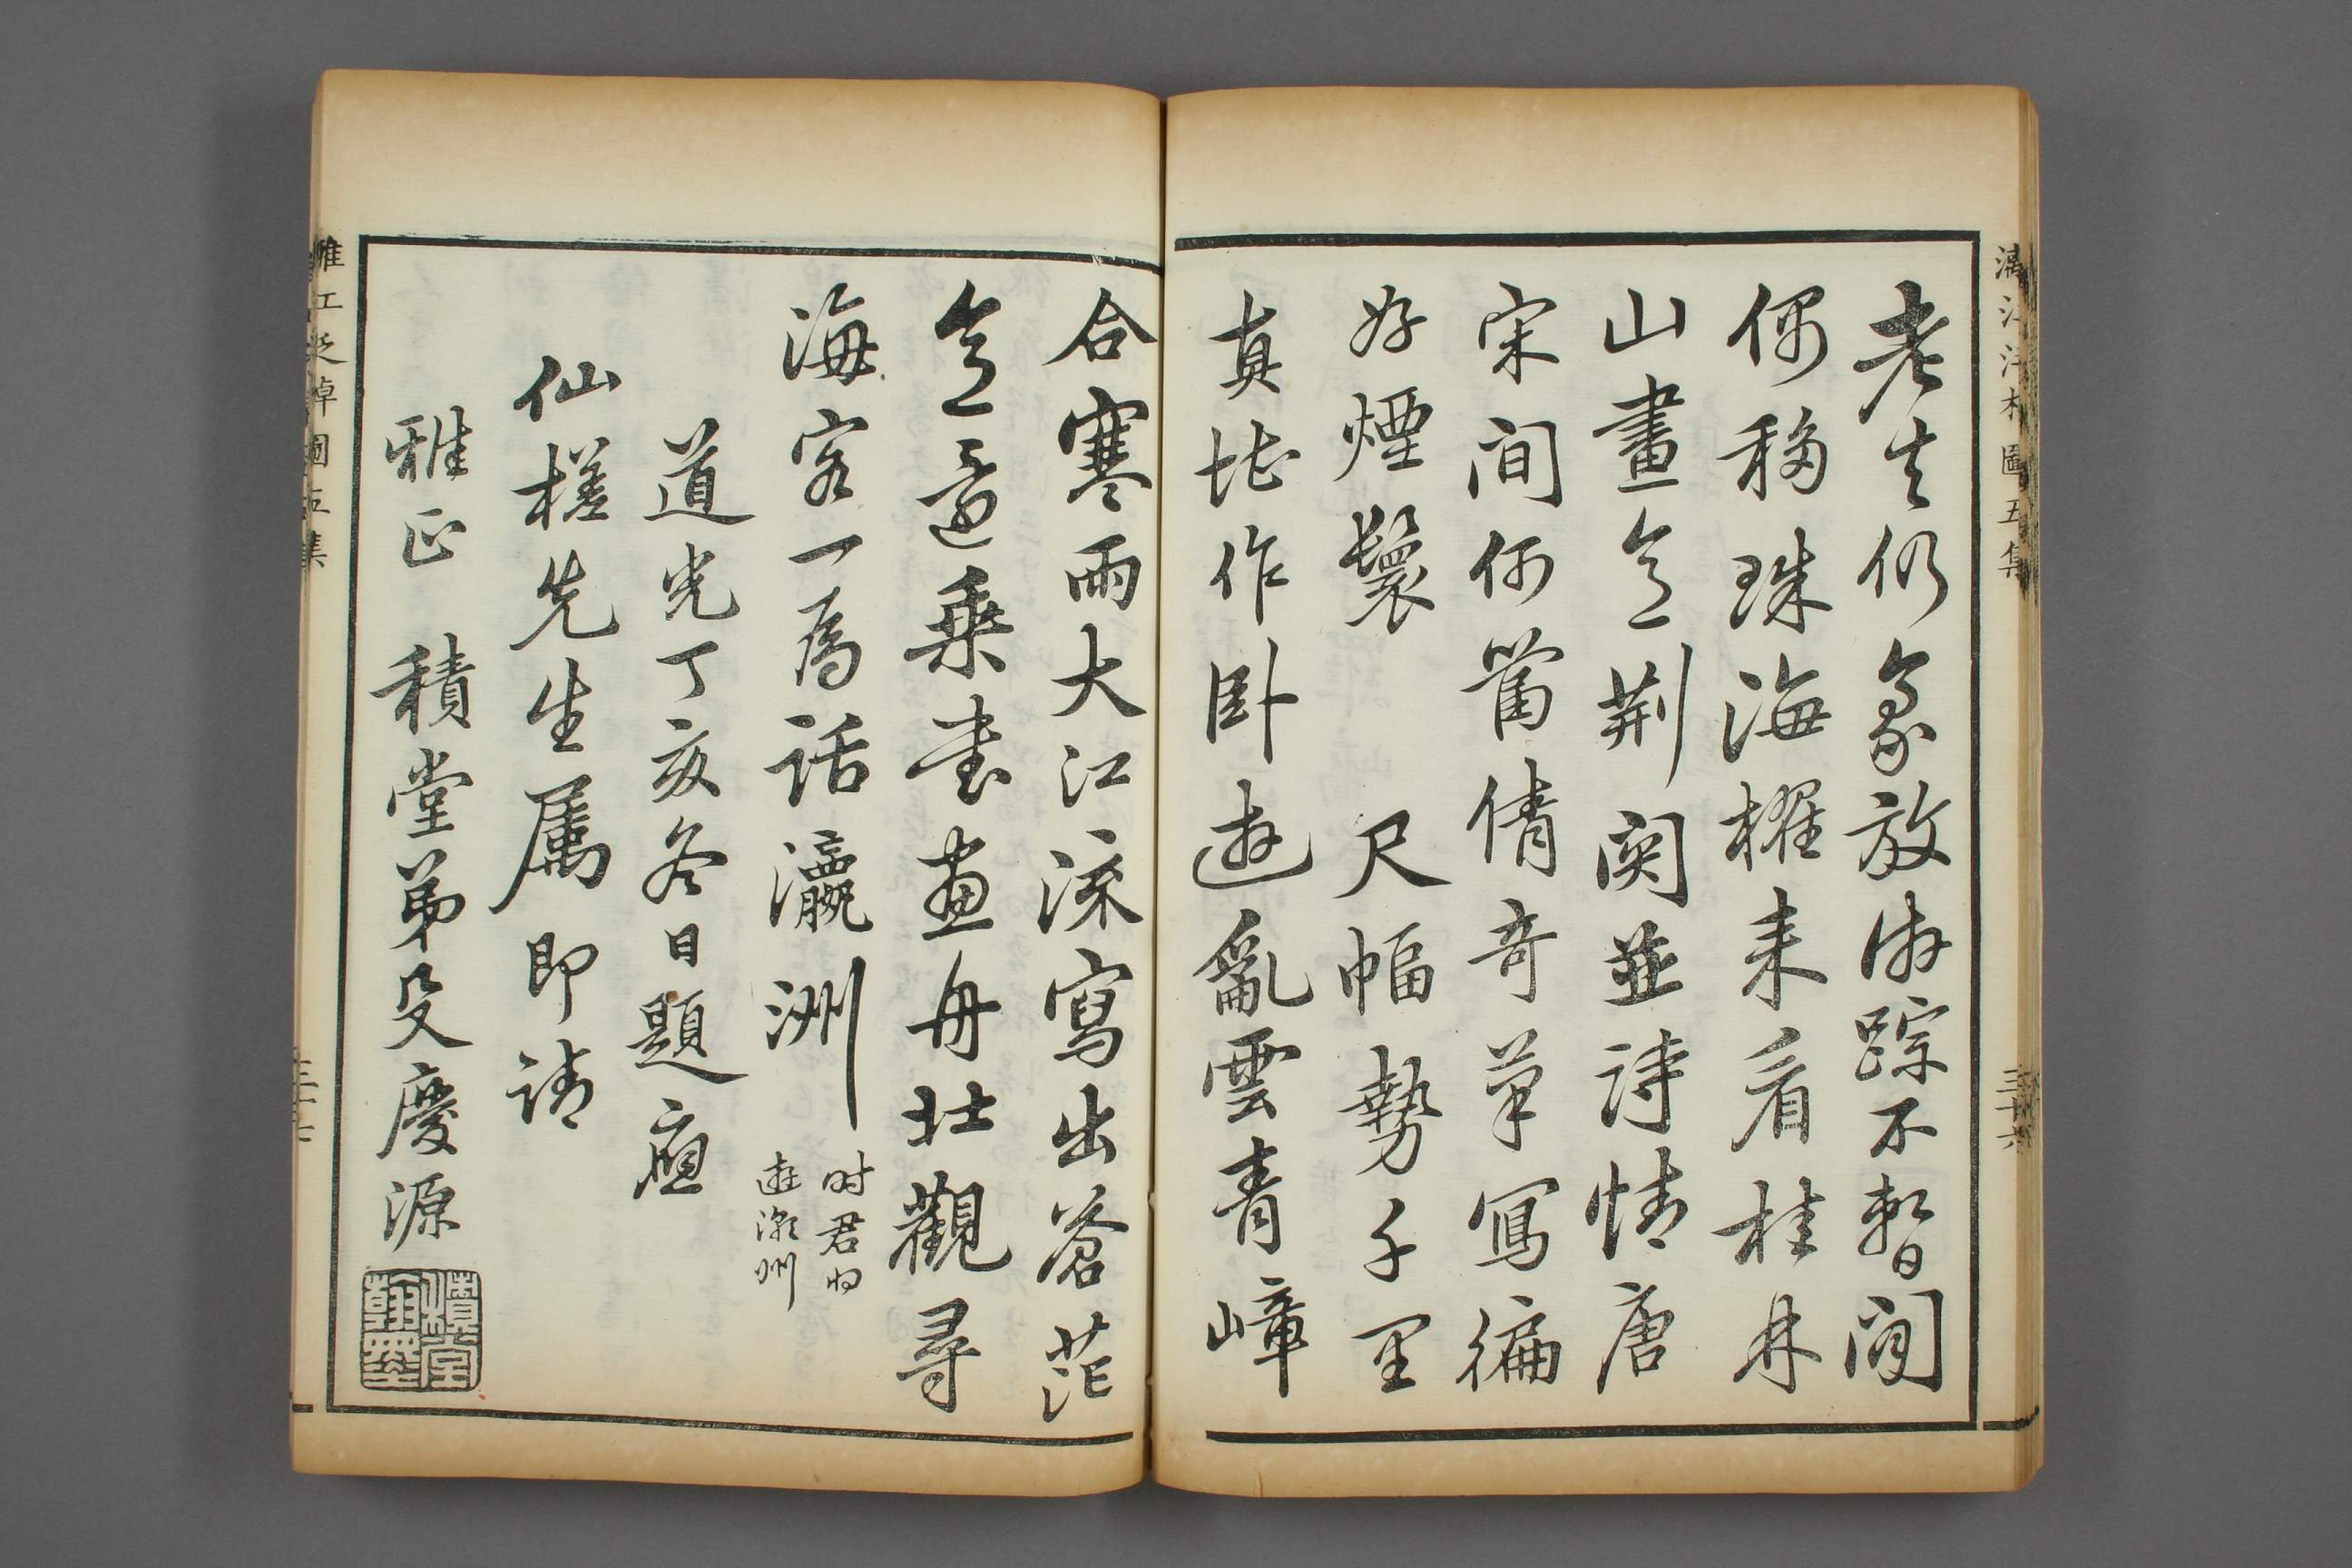 漓江泛棹圖五集
三十六
老去仍豪放游踪不暫閒
偶移珠海櫂来看桂林
山畫意荊関並詩情唐
宋間何當倩奇筆寫徧
好煙鬟 尺幅勢千里
真堪作卧遊亂雲青嶂
合寒雨大江流寫出蒼茫
意還乘書畫舟壯觀尋
海客一為話瀛洲
时君将
遊州
道光丁亥冬日題應
仙槎先生屬即請
雅正 積堂弟殳慶源
積堂
翰墨
江泛棹圖五集
三十七